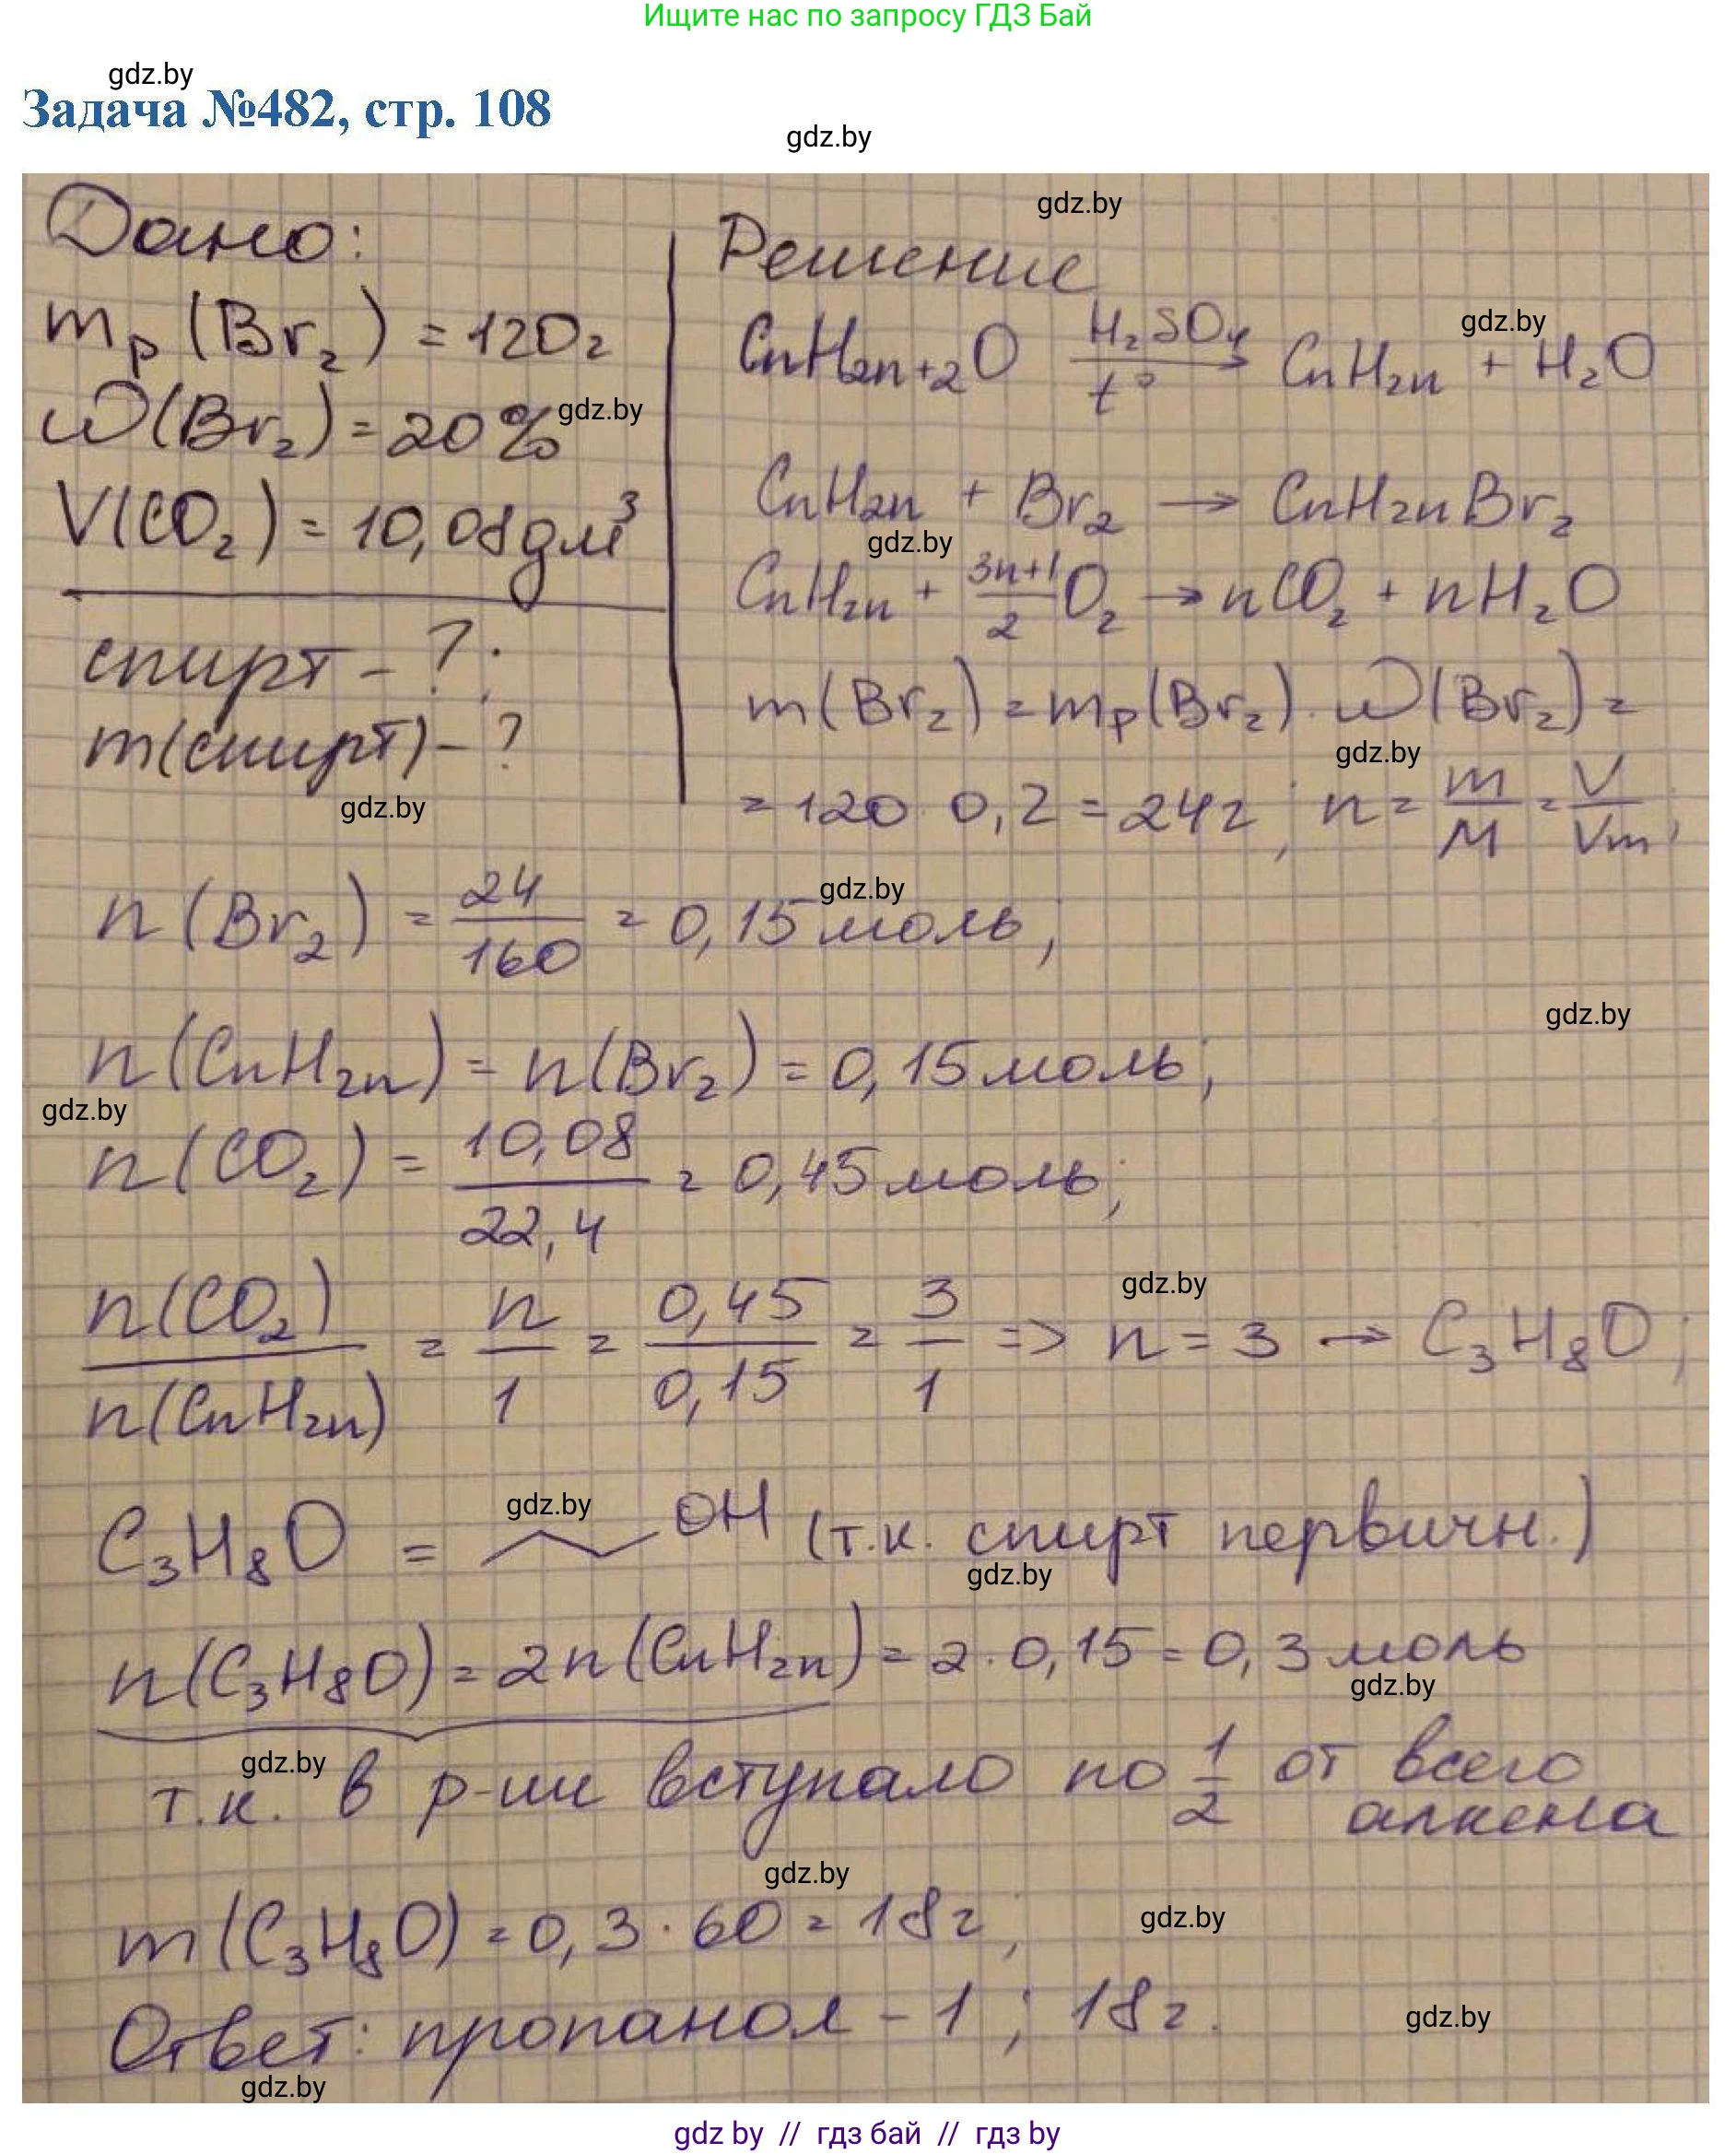 Ищите нас по запросу ГДЗ Бай
gdz.by
Задача №482, стр. 108
gdz.by
Дано:
mр(Br₂) = 120г
ω(Br₂) = 20%
gdz.by
V(CO₂) = 10,08дм³
спирт - ?;
m(спирт) - ?
gdz.by
gdz.by
Решение
CnH2n+2O H₂SO₄ t° → CnH2n + H₂O
gdz.by
CnH2n + Br₂ → CnH2nBr₂
gdz.by
CnH2n + 3n+1/2 O₂ → nCO₂ + nH₂O
m(Br₂) = mр(Br₂) · ω(Br₂) =
gdz.by
= 120 · 0,2 = 24г; n = m/M = V/Vm;
gdz.by
n(Br₂) = 24/160 = 0,15 моль;
gdz.by
n(CnH2n) = n(Br₂) = 0,15 моль;
gdz.by
n(CO₂) = 10,08/22,4 = 0,45 моль;
gdz.by
n(CO₂)/n(CnH2n) = n/1 = 0,45/0,15 = 3/1 => n = 3 → C₃H₈O;
gdz.by
C₃H₈O = OH (т.к. спирт первичн.)
gdz.by
n(C₃H₈O) = 2n(CnH2n) = 2 · 0,15 = 0,3 моль
gdz.by
gdz.by
т.к. в р-ии вступало по 1/2 от всего
алкена
gdz.by
m(C₃H₈O) = 0,3 · 60 = 18г;
gdz.by
Ответ: пропанол - 1; 18г.
gdz.by
gdz.by
gdz by // гдз бай // гдз by